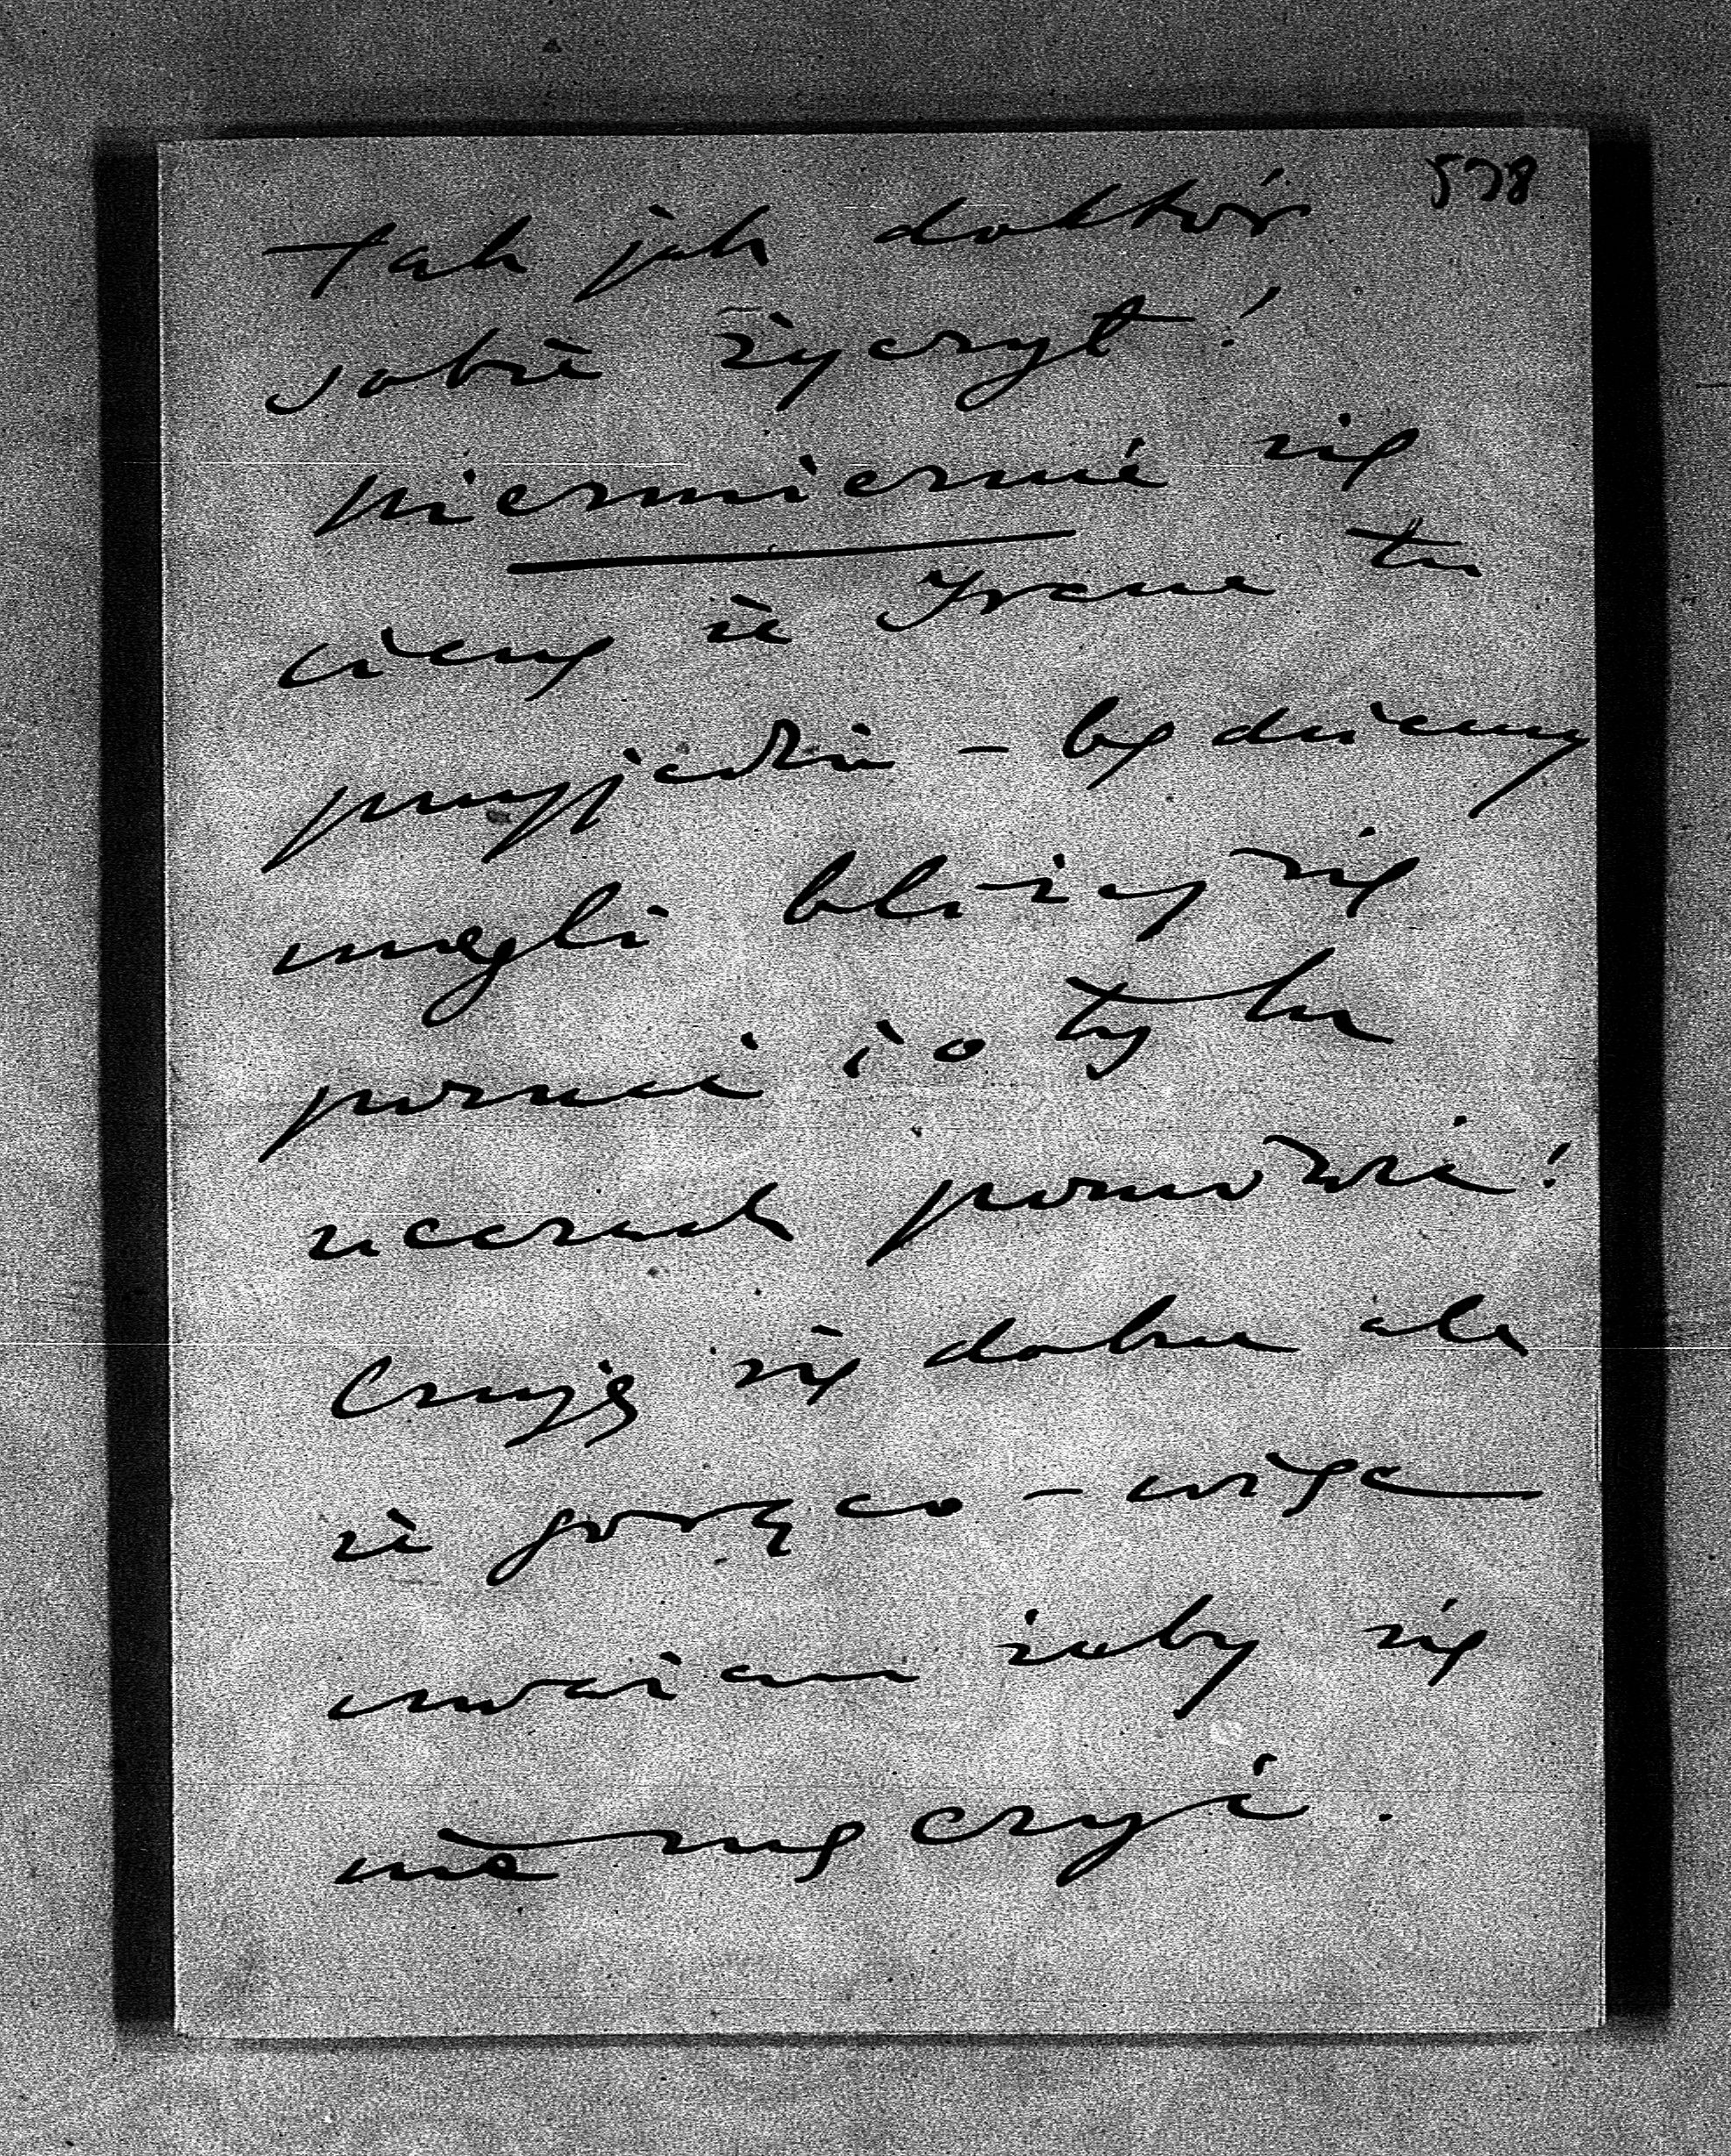 578
tak jak doktór
sobie życzył!
niezmiernie się
cieszę że Irena tu
przyjedzie – będziemy
mogli bliżej się
poznać i o tyle
ucczuć pomoże!
Czuję się dobrze ale
że gorąco – więc
uważam żeby się
nie męczyć.